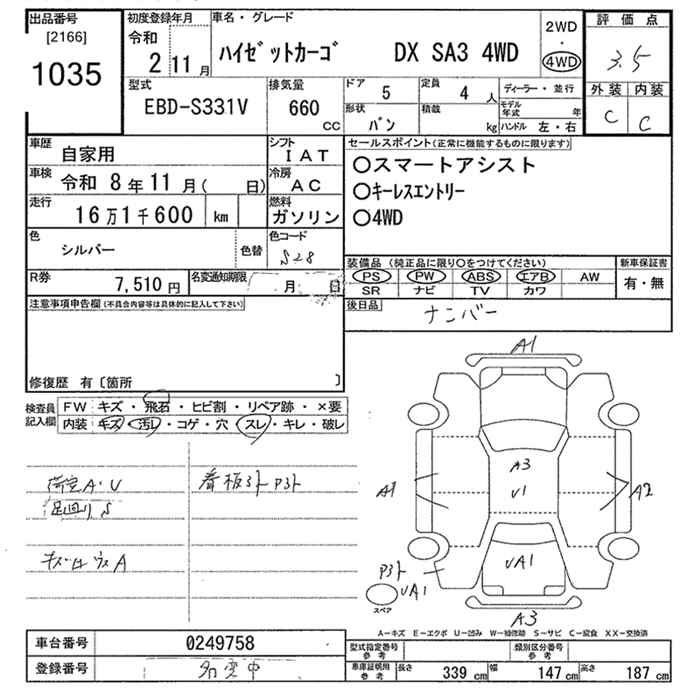 出品番号 初度登録年月 車名・グレード 2WD ・ 4WD 評価点
[2166] 令和
1035 2 11月 ハイゼットカーゴ DX SA3 4WD 3.5
型式 排気量 ドア 5 定員 4人 ディーラー・並行 外装 内装
EBD-S331V 660 CC 形状 バン 積載 kg モデル年式 年 ハンドル 左・右 C C
車歴 自家用 シフト IAT セールスポイント(正常に機能するものに限ります)
車検 令和 8年11月( 日) 冷房 AC ○スマートアシスト
走行 16万1千600 km 燃料 ガソリン ○キーレスエントリー
○4WD
色 シルバー 色替 色コード S28
装備品(純正品に限り○をつけてください) 新車保証書
R券 7,510円 名変通知期限 月 日 PS PW ABS エアB AW 有・無
SR ナビ TV カワ
注意事項申告欄(不具合内容等は具体的に記入して下さい) 後日品 ナンバー
修復歴 有〔箇所 〕
検査員記入欄 FW キズ・飛石・ヒビ割・リペア跡・×要
内装 キズ・汚レ・コゲ・穴・スレ・キレ・破レ
荷室A・U 看板3ト P3ト
足回りS
A1
A3
U1
A1 A2
UA1
P3ト
UA1
スペア
A3
A-キズ E-エクボ U-凹み W-補修跡 S-サビ C-腐食 XX-交換済
車台番号 0249758 型式指定番号 参考 類別区分番号 参考
登録番号 名変中 車庫証明用 参考 長さ 339cm 幅 147cm 高さ 187cm